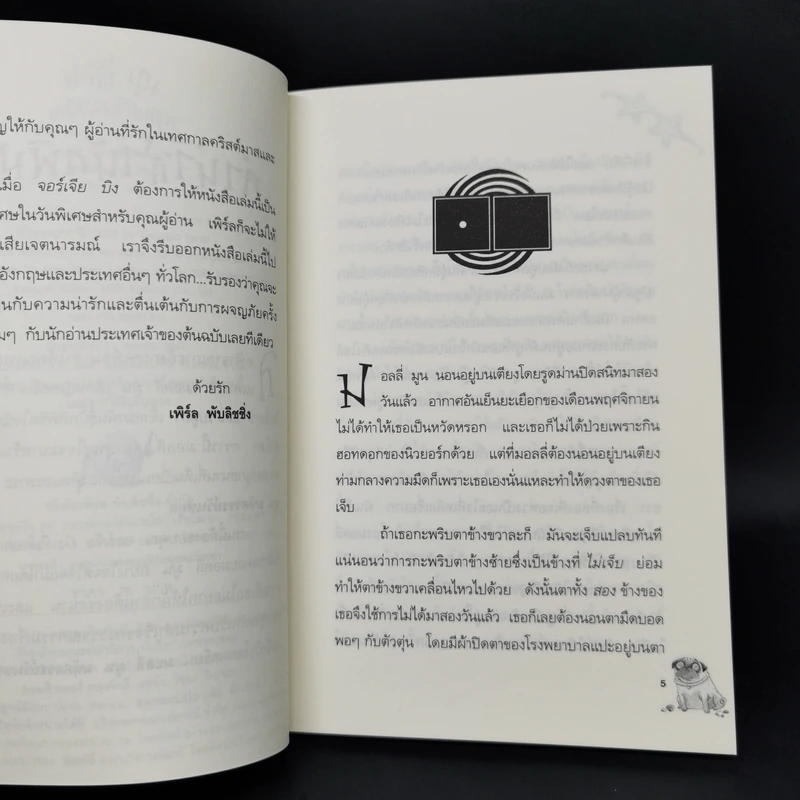 ให้กับคุณๆ ผู้อ่านที่รักในเทศกาลคริสต์มาสและ
เมื่อ จอร์เจีย บิง ต้องการให้หนังสือเล่มนี้เป็น
ในวันพิเศษสำหรับคุณผู้อ่าน เพิร์ลก็จะไม่ให้
เสียเจตนารมณ์ เราจึงรีบออกหนังสือเล่มนี้ไป
อังกฤษและประเทศอื่นๆ ทั่วโลก...รับรองว่าคุณจะ
กับความน่ารักและตื่นเต้นกับการผจญภัยครั้ง
กับนักอ่านประเทศเจ้าของต้นฉบับเลยทีเดียว
ด้วยรัก
เพิร์ล พับลิชชิ่ง
มอลลี่ มูน นอนอยู่บนเตียงโดยรูดม่านปิดสนิทมาสอง
วันแล้ว อากาศอันเย็นยะเยือกของเดือนพฤศจิกายน
ไม่ได้ทำให้เธอเป็นหวัดหรอก และเธอก็ไม่ได้ป่วยเพราะกิน
ฮอทดอกของนิวยอร์กด้วย แต่ที่มอลลี่ต้องนอนอยู่บนเตียง
ท่ามกลางความมืดก็เพราะเธอเองนั่นแหละทำให้ดวงตาของเธอ
เจ็บ
ถ้าเธอกะพริบตาข้างขวาละก็ มันจะเจ็บแปลบทันที
แน่นอนว่าการกะพริบตาข้างซ้ายซึ่งเป็นข้างที่ ไม่เจ็บ ย่อม
ทำให้ตาข้างขวาเคลื่อนไหวไปด้วย ดังนั้นตาทั้ง สอง ข้างของ
เธอจึงใช้การไม่ได้มาสองวันแล้ว เธอก็เลยต้องนอนตามืดบอด
พอๆ กับตัวตุ่น โดยมีผ้าปิดตาของโรงพยาบาลแปะอยู่บนตา
5